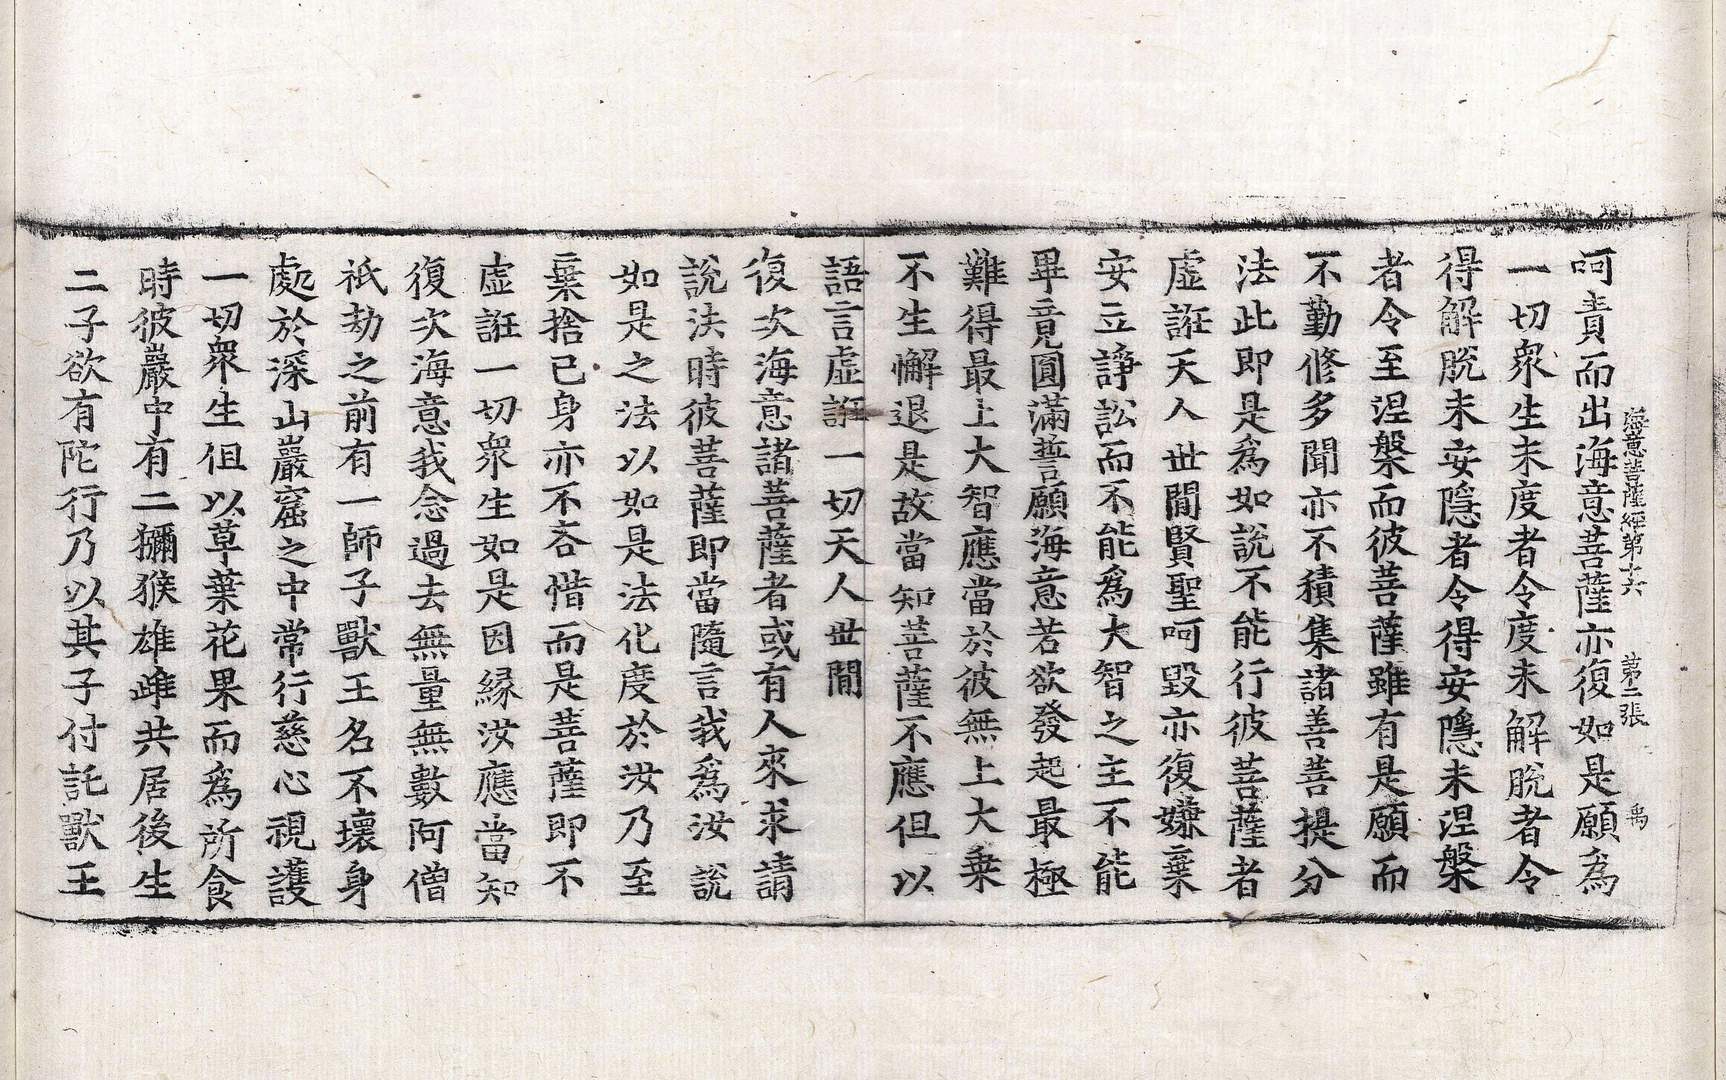 海意菩薩經第十六 第二張 禹
呵責而出海意菩薩亦復如是願爲
一切衆生未度者令度未解脫者令
得解脫未安隱者令得安隱未涅槃
者令至涅槃而彼菩薩雖有是願而
不勤修多聞亦不積集諸善菩提分
法此即是爲如說不能行彼菩薩者
虛誑天人世間賢聖呵毀亦復嫌棄
安立諍訟而不能爲大智之主不能
畢竟圓滿誓願海意若欲發起最極
難得最上大智應當於彼無上大乘
不生懈退是故當知菩薩不應但以
語言虛誑一切天人世間
復次海意諸菩薩者或有人來求請
說法時彼菩薩即當隨言我爲汝說
如是之法以如是法化度於汝乃至
棄捨已身亦不吝惜而是菩薩即不
虛誑一切衆生如是因緣汝應當知
復次海意我念過去無量無數阿僧
祇劫之前有一師子獸王名不壞身
處於深山巖窟之中常行慈心視護
一切衆生但以草葉花果而爲所食
時彼巖中有二獼猴雄雌共居後生
二子欲有陀行乃以其子付託獸王